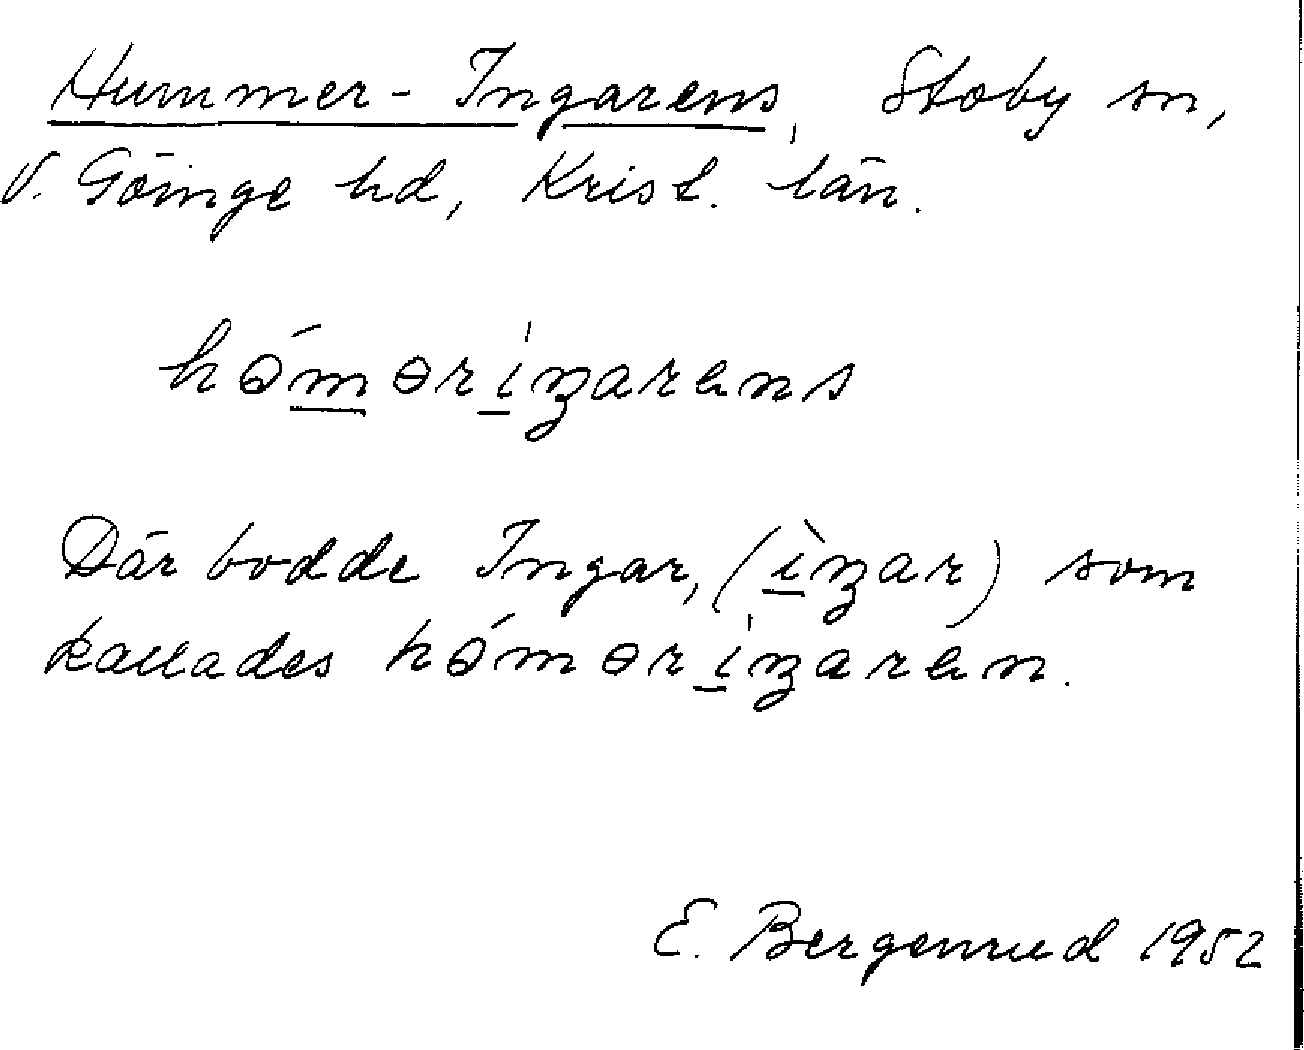 Hummer-Ingarens, Stoby sn,
V. Göinge hd, Krist. län.
hǿmɵriŋarɐns
Där bodde Ingar, (ìŋar) som
kallades hǿmɵriŋarɐn.
E. Bergenrud 1952